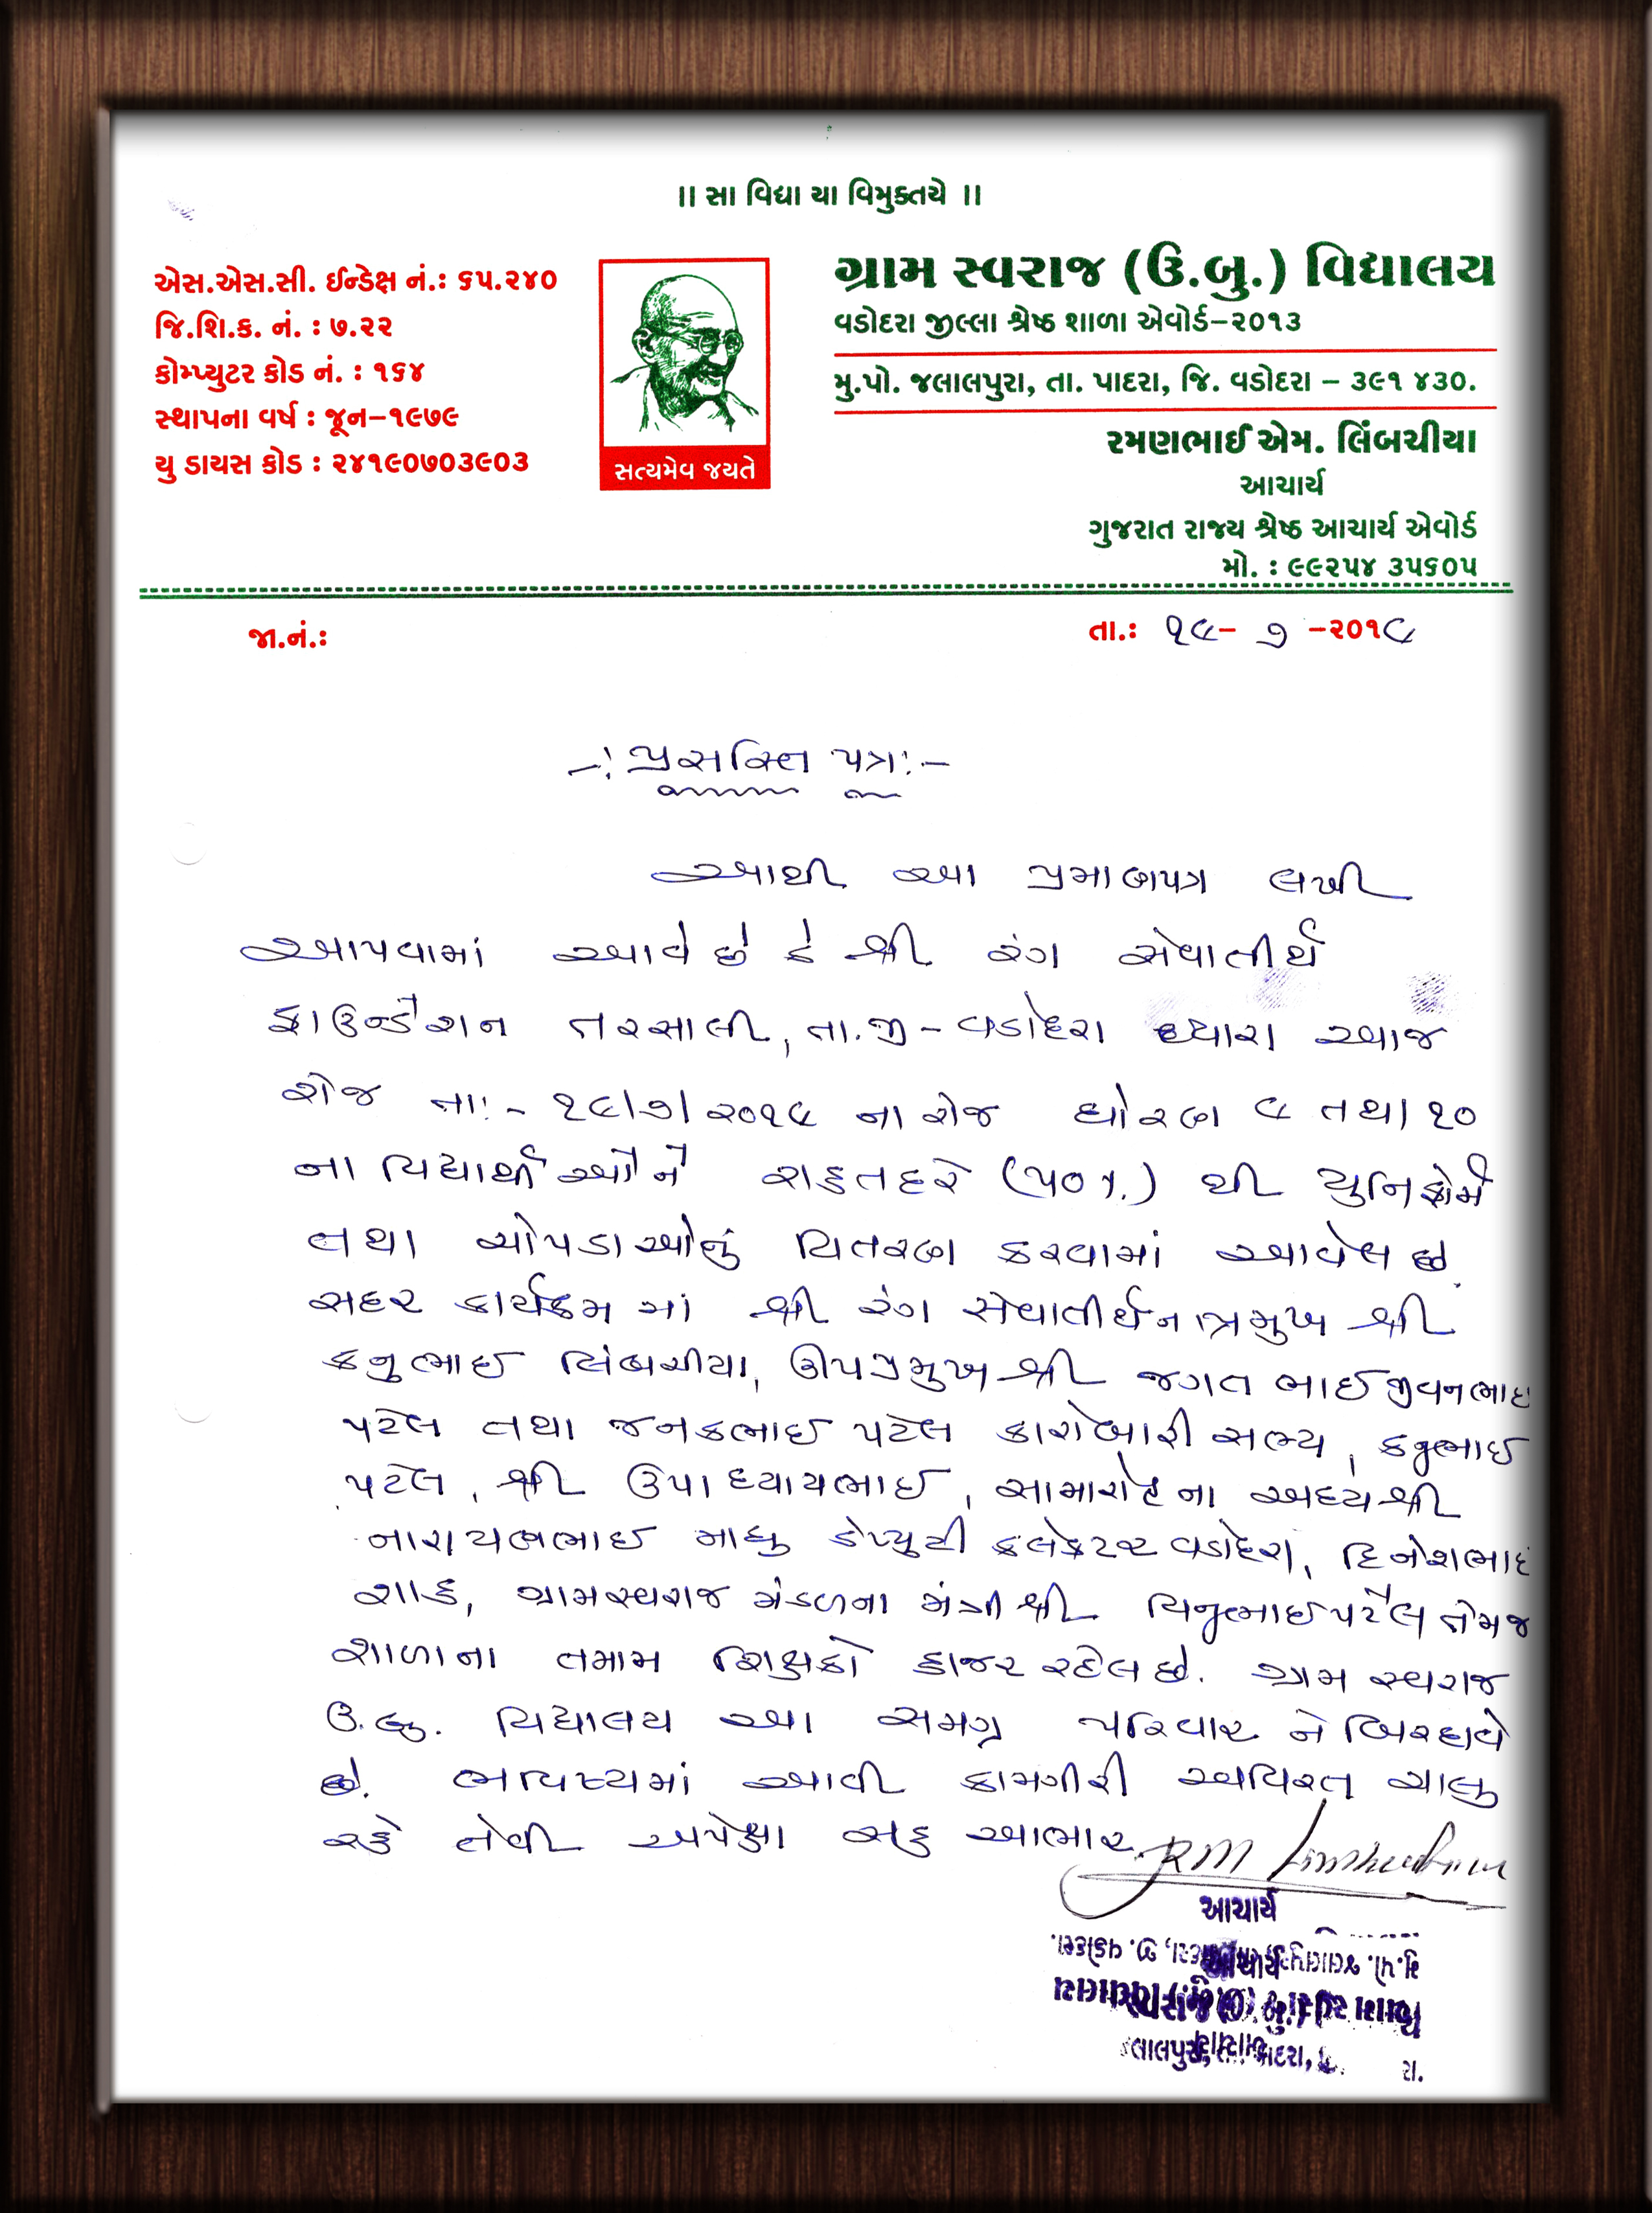 ।। સા વિદ્યા યા વિમુક્તયે ।।
એસ.એસ.સી. ઈન્ડેક્ષ નં.: ૬૫.૨૪૦
જિ.શિ.ક. નં. : ૭.૨૨
કોમ્પ્યુટર કોડ નં. : ૧૬૪
સ્થાપના વર્ષ : જૂન-૧૯૭૯
યુ ડાયસ કોડ : ૨૪૧૯૦૭૦૩૯૦૩
સત્યમેવ જયતે
ગ્રામ સ્વરાજ (ઉ.બુ.) વિદ્યાલય
વડોદરા જીલ્લા શ્રેષ્ઠ શાળા એવોર્ડ-૨૦૧૩
મુ.પો. જલાલપુરા, તા. પાદરા, જિ. વડોદરા - ૩૯૧ ૪૩૦.
રમણભાઈ એમ. લિંબચીયા
આચાર્ય
ગુજરાત રાજ્ય શ્રેષ્ઠ આચાર્ય એવોર્ડ
મો. : ૯૯૨૫૪ ૩૫૬૦૫
જા.નં.:
તા.: ૧૯- ૭ -૨૦૧૯
-: પ્રસક્તિ પત્ર :-
આથી આ પ્રમાણપત્ર લખી
આપવામાં આવે છે કે શ્રી રંગ સેવાતીર્થ
ફાઉન્ડેશન તરસાલી, તા.જી - વડોદરા ધ્વારા આજ
રોજ તા:- ૧૯/૭/૨૦૧૯ ના રોજ ધોરણ ૯ તથા ૧૦
ના વિદ્યાર્થીઓને રાહતદરે (૫૦%) થી યુનિફોર્મ
તથા ચોપડાઓનું વિતરણ કરવામાં આવેલ છે.
સદર કાર્યક્રમ માં શ્રી રંગ સેવાતીર્થના પ્રમુખ શ્રી
કનુભાઈ લિંબચીયા, ઉપપ્રમુખ શ્રી જગતભાઈ જીવનભાઈ
પટેલ તથા જનકભાઈ પટેલ કારોબારી સભ્ય, કનુભાઈ
પટેલ, શ્રી ઉપાધ્યાયભાઈ, સામારોહ ના અધ્યશ્રી
નારાયણભાઈ માધુ ડેપ્યુટી કલેકટર વડોદરા, દિનેશભાઈ
શાહ, ગ્રામસ્વરાજ મંડળના મંત્રી શ્રી વિનુભાઈ પટેલ તેમજ
શાળાના તમામ શિક્ષકો હાજર રહેલ છે. ગ્રામ સ્વરાજ
ઉ.બુ. વિદ્યાલય આ સમગ્ર પરિવાર ને બિરદાવે
છે. ભવિષ્યમાં આવી કામગીરી અવિરત ચાલુ
રહે તેવી અપેક્ષા સહ આભાર.
આચાર્ય